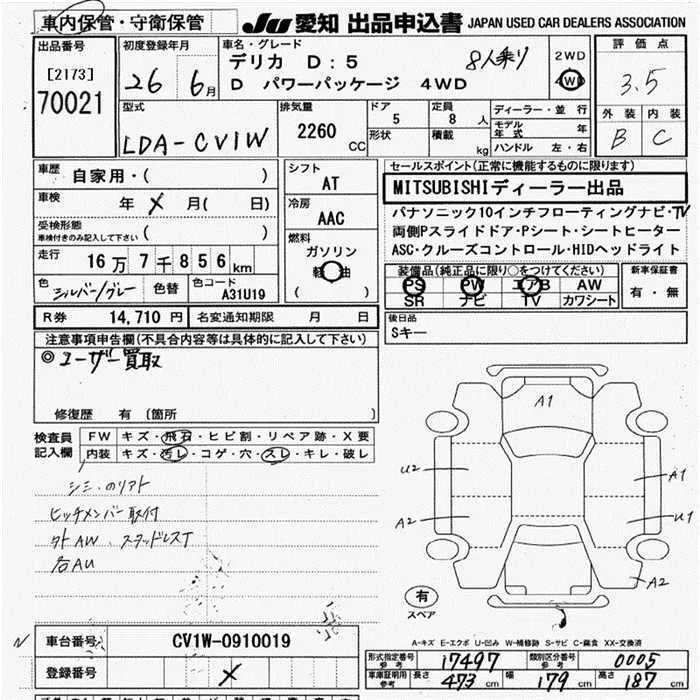 車内保管・守衛保管
JU 愛知 出品申込書 JAPAN USED CAR DEALERS ASSOCIATION
出品番号
[2173]
70021
初度登録年月
26 6月
車名・グレード
デリカ D:5 8人乗り
D パワーパッケージ 4WD
2WD
4WD
評価点
3.5
外装 内装
B C
型式
LDA-CV1W
排気量
2260 CC
ドア 5
形状
定員 8 人
積載 kg
ディーラー・並行
モデル年式 年
ハンドル 左・右
車歴 自家用・( )
車検 年 月( 日)
受検形態
車検付きのみ記入して下さい ( )
走行 16万7千856km
色 シルバー/グレー 色替 色コード A31U19
シフト AT
冷房 AAC
燃料
ガソリン
軽油
( )
セールスポイント(正常に機能するものに限ります)
MITSUBISHIディーラー出品
パナソニック10インチフローティングナビ・TV
両側Pスライドドア・Pシート・シートヒーター
ASC・クルーズコントロール・HIDヘッドライト
装備品(純正品に限り○をつけてください)
PS PW エアB AW
SR ナビ TV カワシート
新車保証書
有・無
R券 14,710円 名変通知期限 月 日
後日品
Sキー
注意事項申告欄(不具合内容等は具体的に記入して下さい)
◎ユーザー買取
修復歴 有 〔箇所 〕
検査員
記入欄
FW キズ・飛石・ヒビ割・リペア跡・X要
内装 キズ・汚レ・コゲ・穴・スレ・キレ・破レ
シミ・のリアト
ヒッチメンバー取付
外AW スタッドレスT
名AU
A1
U2
A1
A2
U1
A2
有
スペア
A-キズ E-エクボ U-凹み W-補修跡 S-サビ C-腐食 XX-交換済
N
車台番号 CV1W-0910019
登録番号
形式指定番号 参考 17497 類別区分番号 参考 0005
車庫証明用 参考 長さ 473 cm 幅 179 cm 高さ 187 cm